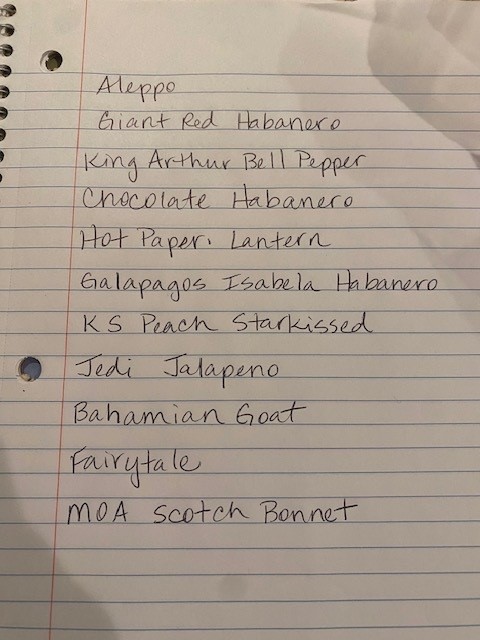 Aleppo
Giant Red Habanero
King Arthur Bell Pepper
Chocolate Habanero
Hot Paper. Lantern
Galapagos Isabela Habanero
KS Peach Starkissed
Jedi Jalapeno
Bahamian Goat
Fairytale
MOA Scotch Bonnet